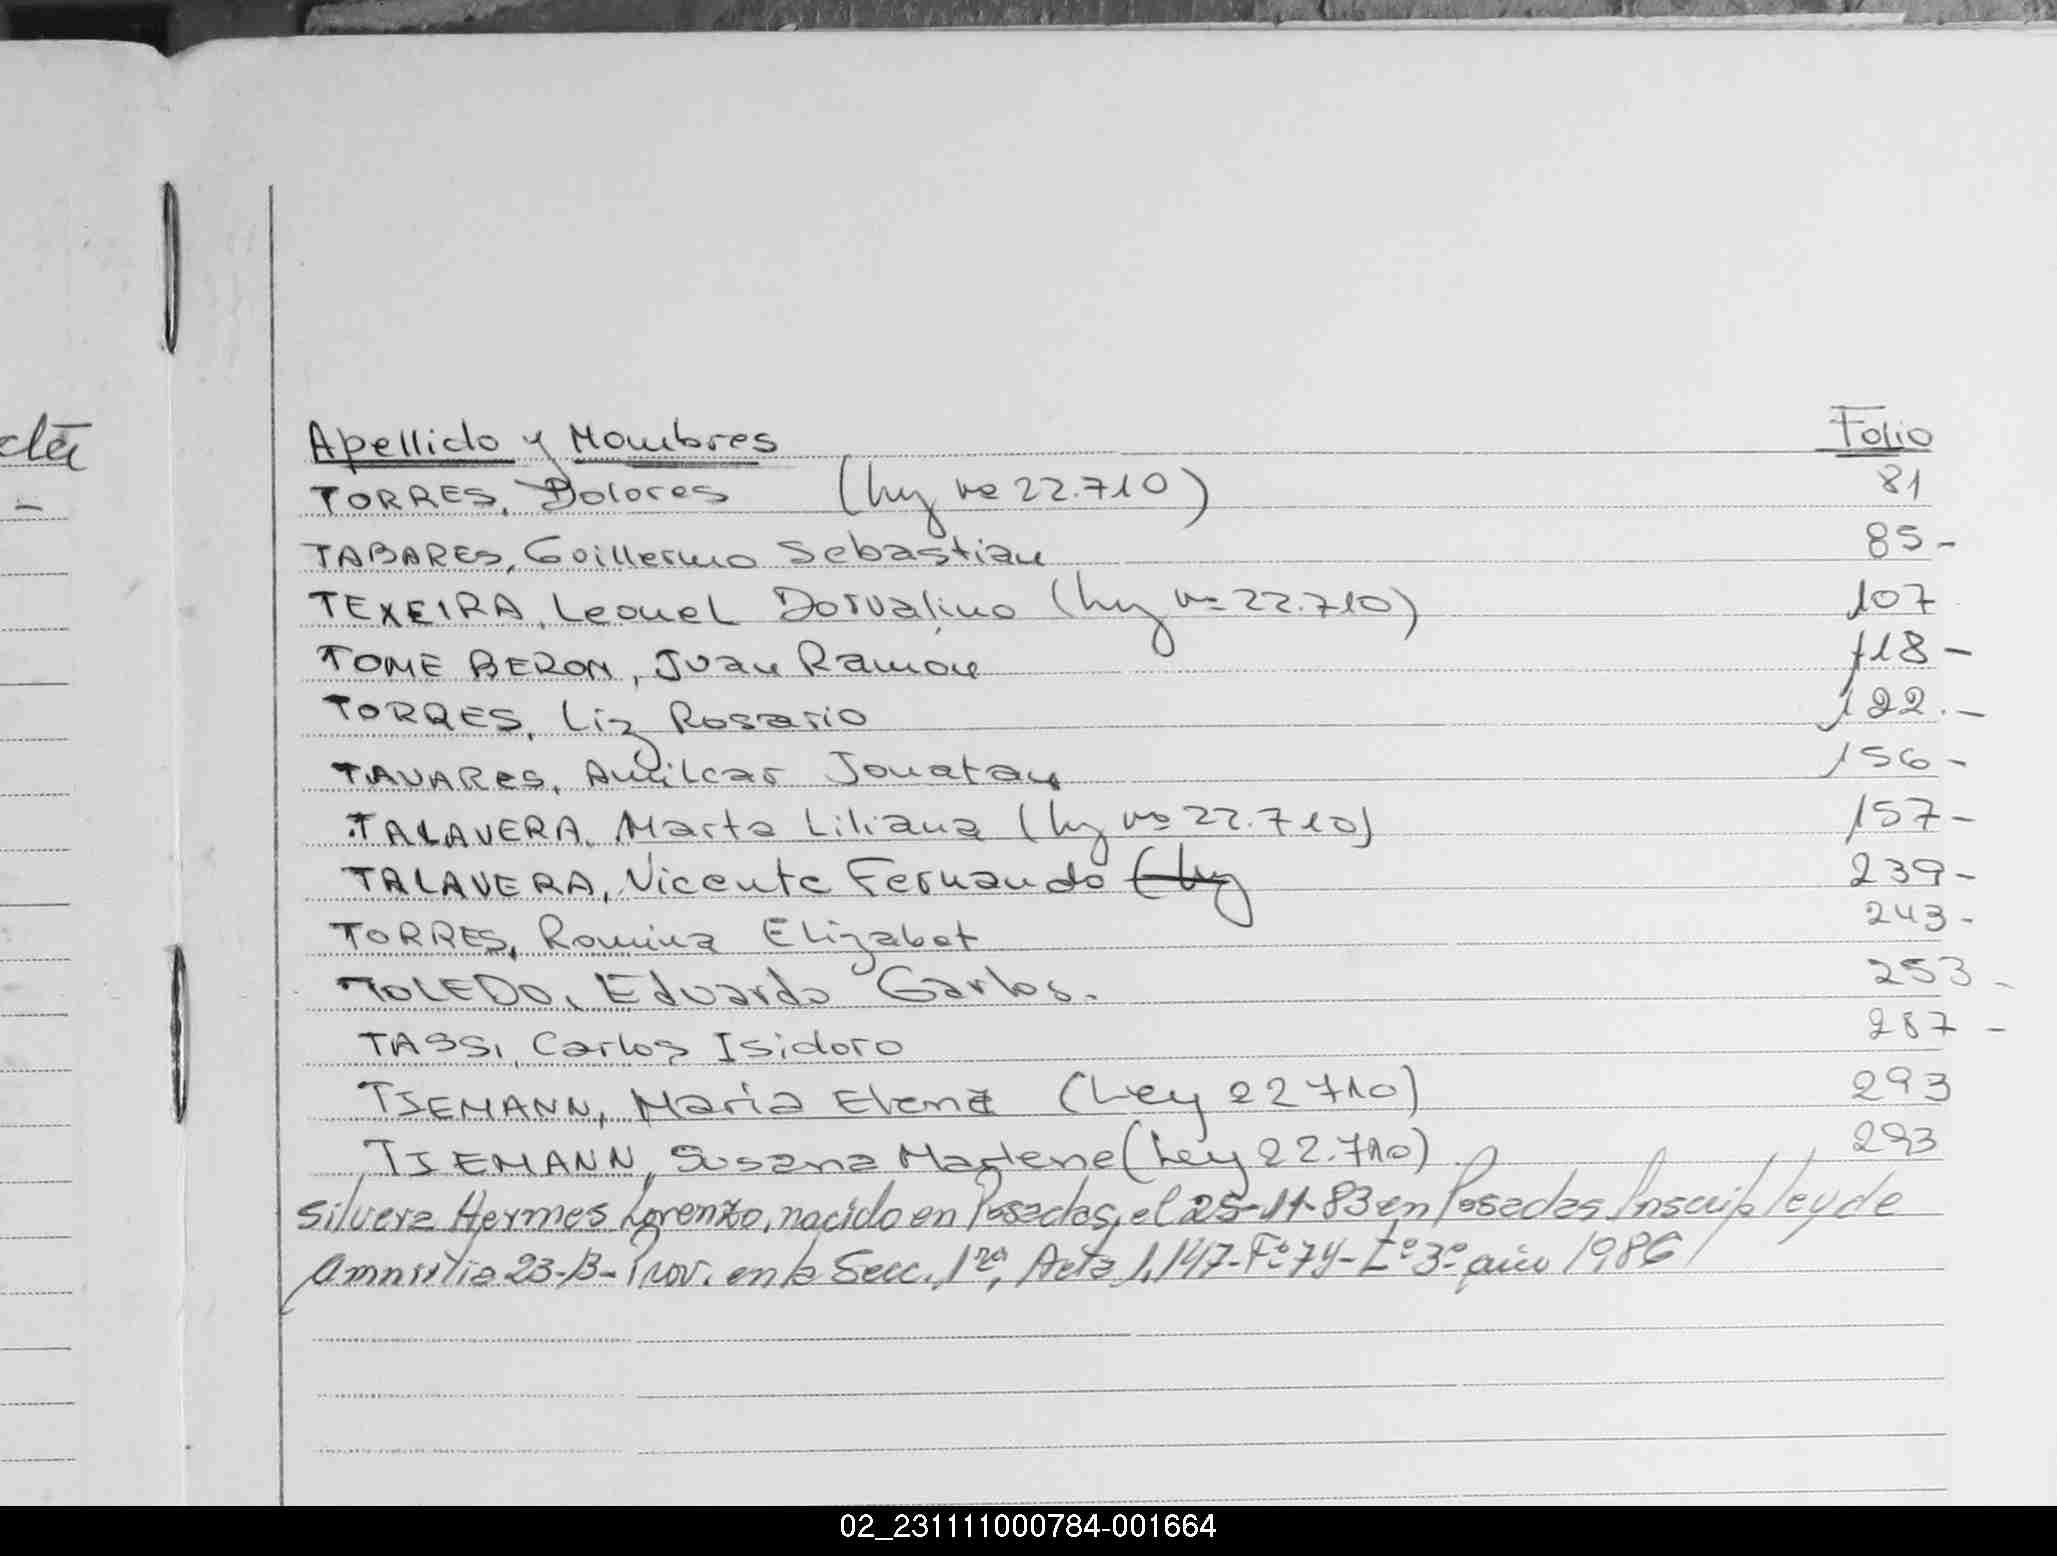 Apellido y Nombres Folio
TORRES, Dolores (ley nº 22.710) 81
TABARES, Guillermo Sebastian 85-
TEXEIRA, Leonel Dorvalino (ley nº 22.710) 107
TOME BERON, Juan Ramon 118-
TORRES, Liz Rosario 122.-
TAVARES, Amilcar Jonatan 156-
TALAVERA, Marta Liliana (ley nº 22.710) 157-
TALAVERA, Vicente Fernando (ley 239-
TORRES, Romina Elizabet 243-
TOLEDO, Eduardo Carlos. 253-
TASSI, Carlos Isidoro 287-
TJEMANN, Maria Elena (Ley 22710) 293
TJEMANN, Susana Marlene (Ley 22.710) 293
Silvera Hermes Lorenzo, nacido en Posadas, el 25-11-83 en Posadas Inscrip ley de
Amnistia 23-B-Prov. en la Secc. 1ra, Acta 1,147-Fº74-Tº3º año 1986
02_231111000784-001664